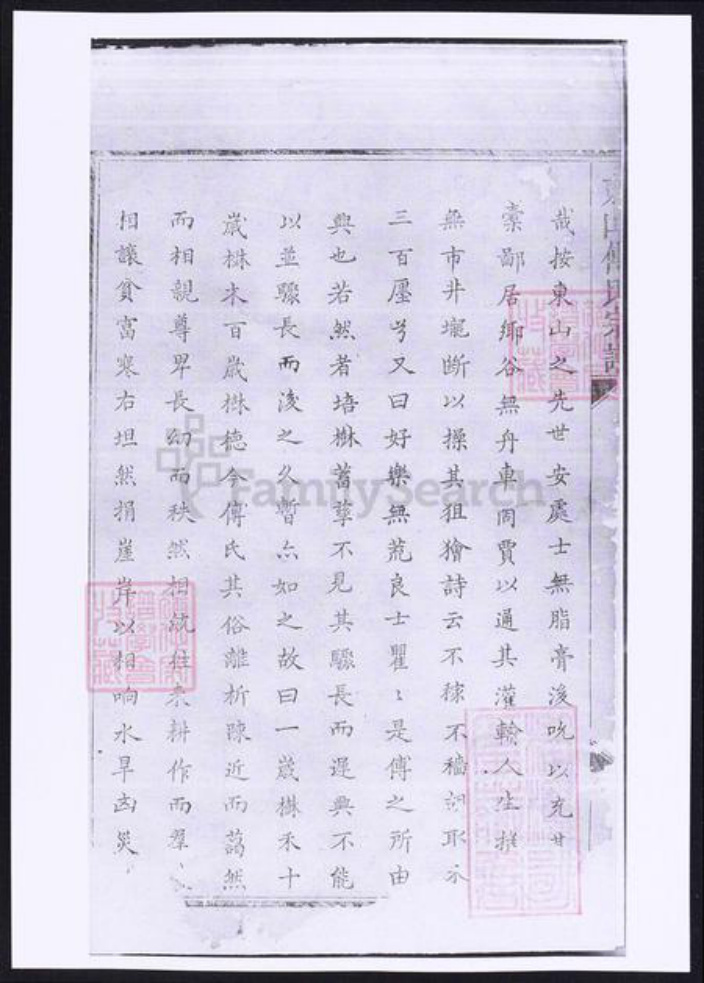 東山傅氏宗譜
哉按東山之先世安處士無脂膏浚吮以充甘
橐鄙居鄉谷無舟車同賈以通其灌輸人生
無市井壠斷以操其狙獪詩云不稼不穡胡取禾
三百廛兮又曰好樂無荒良士瞿〻是傅之所由
興也若然者培樹蓄孳不見其驟長而遅興不能
以並驟長而浚之久暫亦如之故曰一歲樹禾十
歲樹木百歲樹德今傅氏其俗離析踈近而藹然
而相親尊卑長幼而秩然相統往來耕作而羣〻
相讓貧富寒右坦然捐崖岸以相呴水旱凶災
FamilySearch